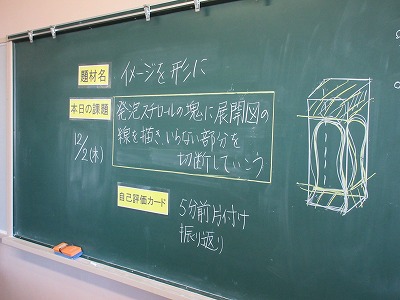 題材名 イメージを形に
本日の課題
12/2(木)
発泡スチロールの塊に展開図の
線を描き、いらない部分を
切断していこう
自己評価カード
5分前片付け
振り返り